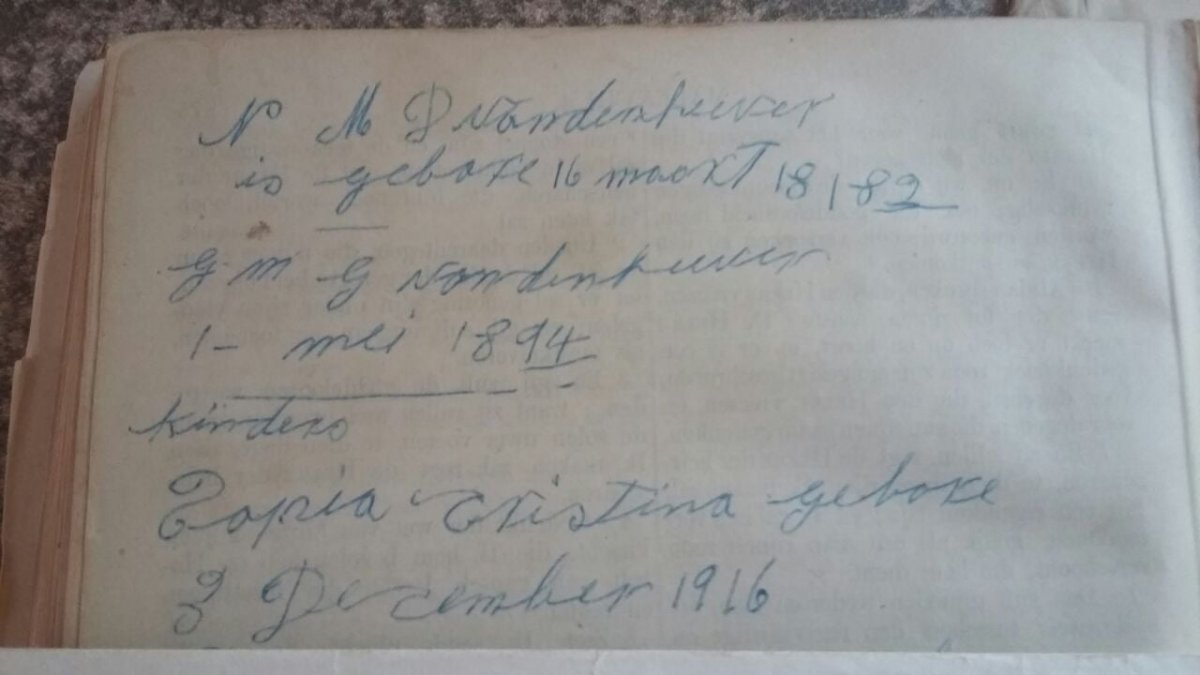 N M D vandenheever
is gebore 16 maart 18 1882
G M G vandenheever
1 - mei 1894
kinders
Sopia Cristina gebore
3 December 1916